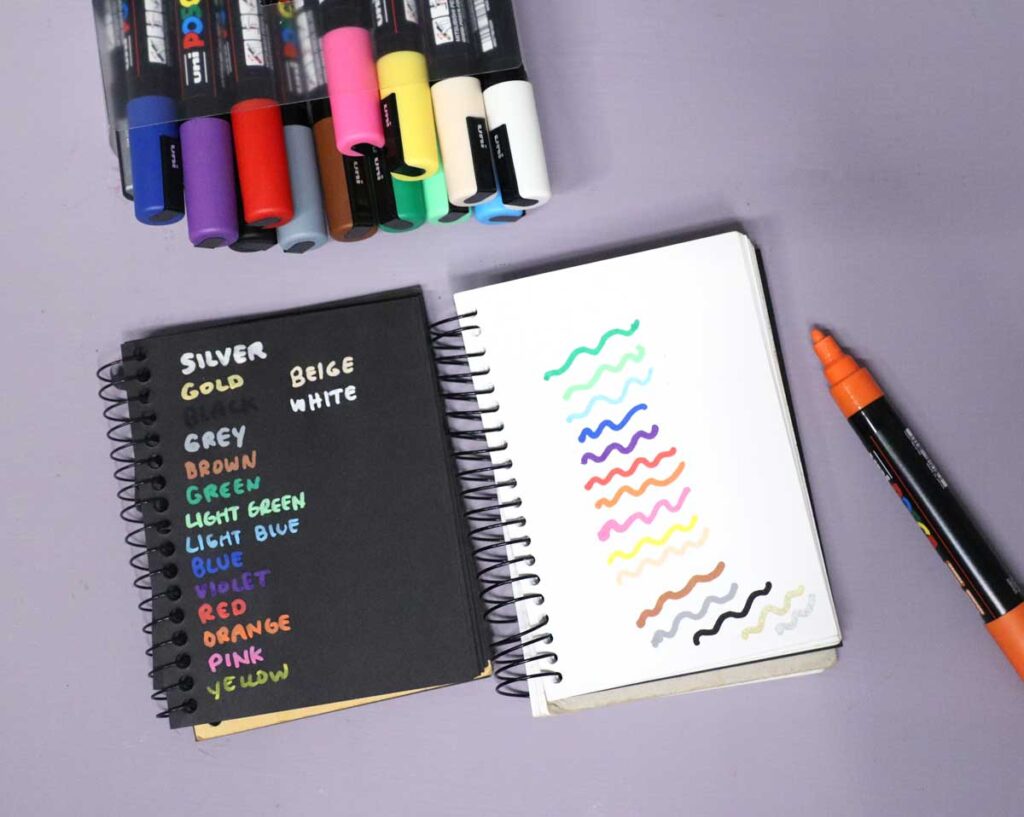 uni POSC
uni
uni
uni
uni
uni
SILVER
GOLD
BLACK
GREY
BROWN
GREEN
LIGHT GREEN
LIGHT BLUE
BLUE
VIOLET
RED
ORANGE
PINK
YELLOW
BEIGE
WHITE